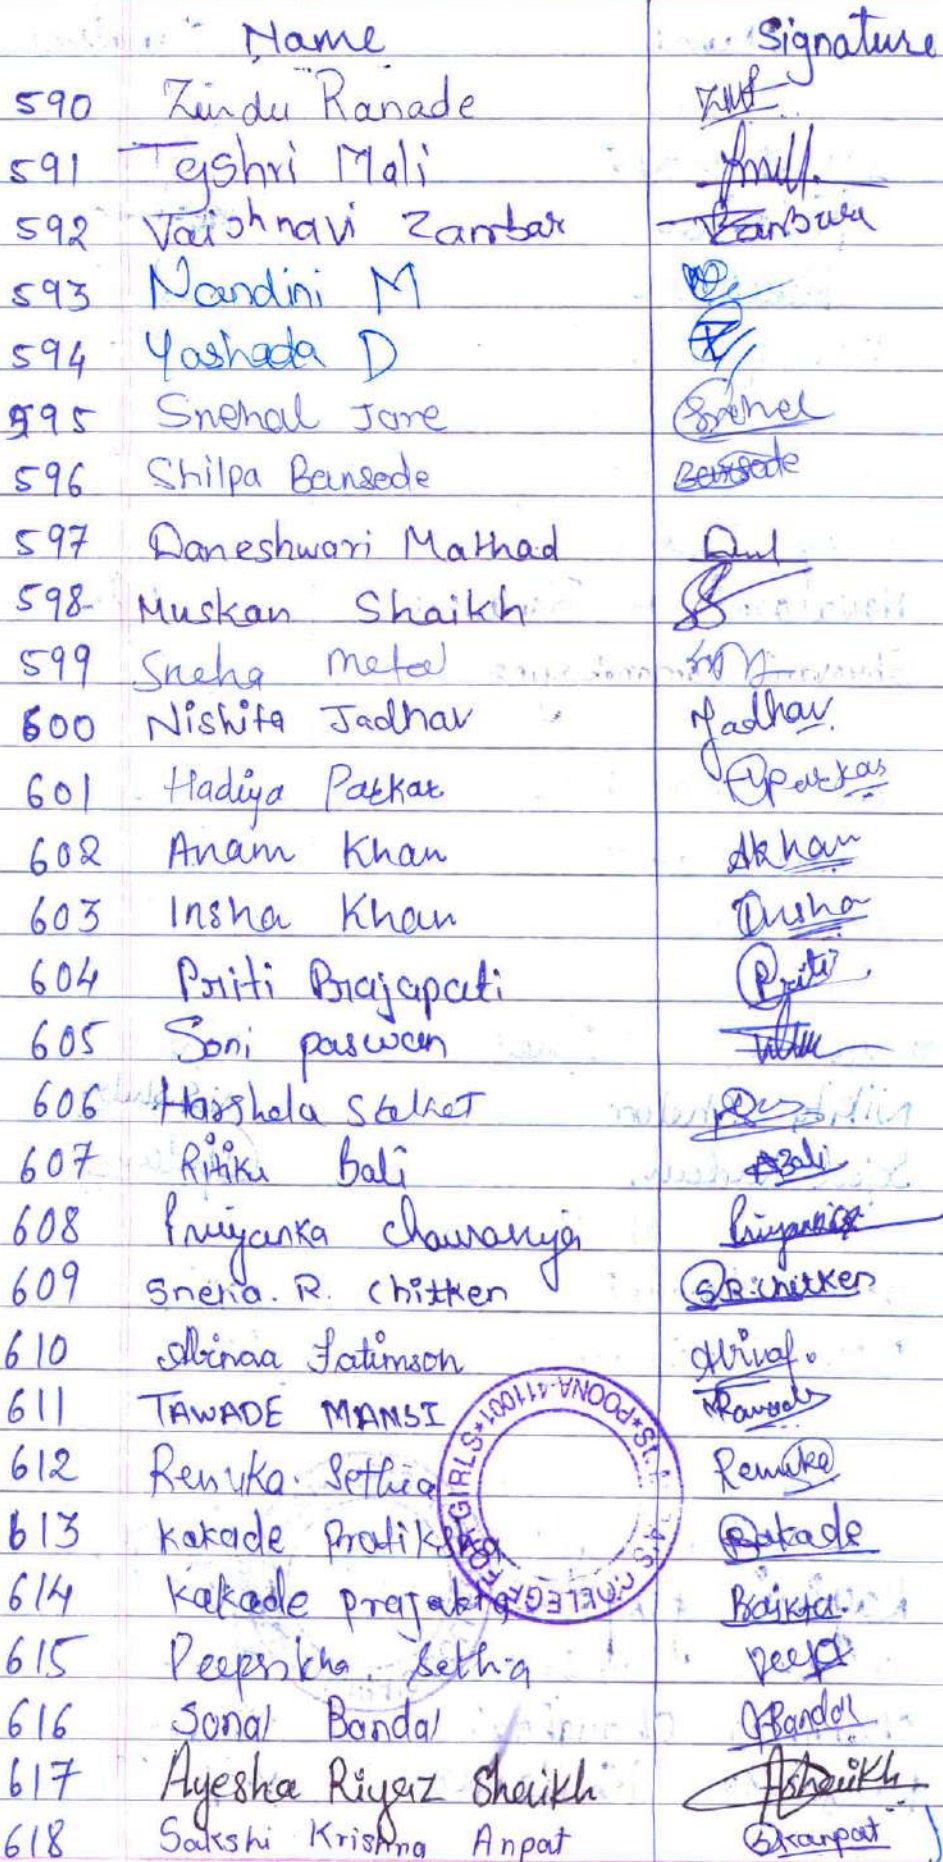 Name Signature
590 Zundu Ranade
591 Tejshri Mali
592 Vaishnavi Zambar Zambare
593 Nandini M
594 Yashada D
595 Snehal Jore Snehal
596 Shilpa Bansode Bansode
597 Daneshwari Mathad
598 Muskan Shaikh
599 Sneha
600 Nishita Jadhav Jadhav.
601 Hadiya Parkar Parkar
602 Anam Khan AKhan
603 Insha Khan Insha
604 Priti Prajapati Priti
605 Soni paswan
606 Harshala
607 Ritika Bali Bali
608 Priyanka Chaurasiya Priyanka
609 Sneha. R. Chitken S.R.chitken
610 Fatimson
611 TAWADE MANSI
612 Renuka. Sethia Renuka
613 Kakade Pratiksha Kakade
614 Kakade prajakta
615 Deepsikha Sethia Deepa
616 Sonal Bandal Bandal
617 Ayesha Riyaz Shaikh AShaikh
618 Sakshi Krishna Anpat Skanpat
FOR GIRLS*POONA-411001*ST.